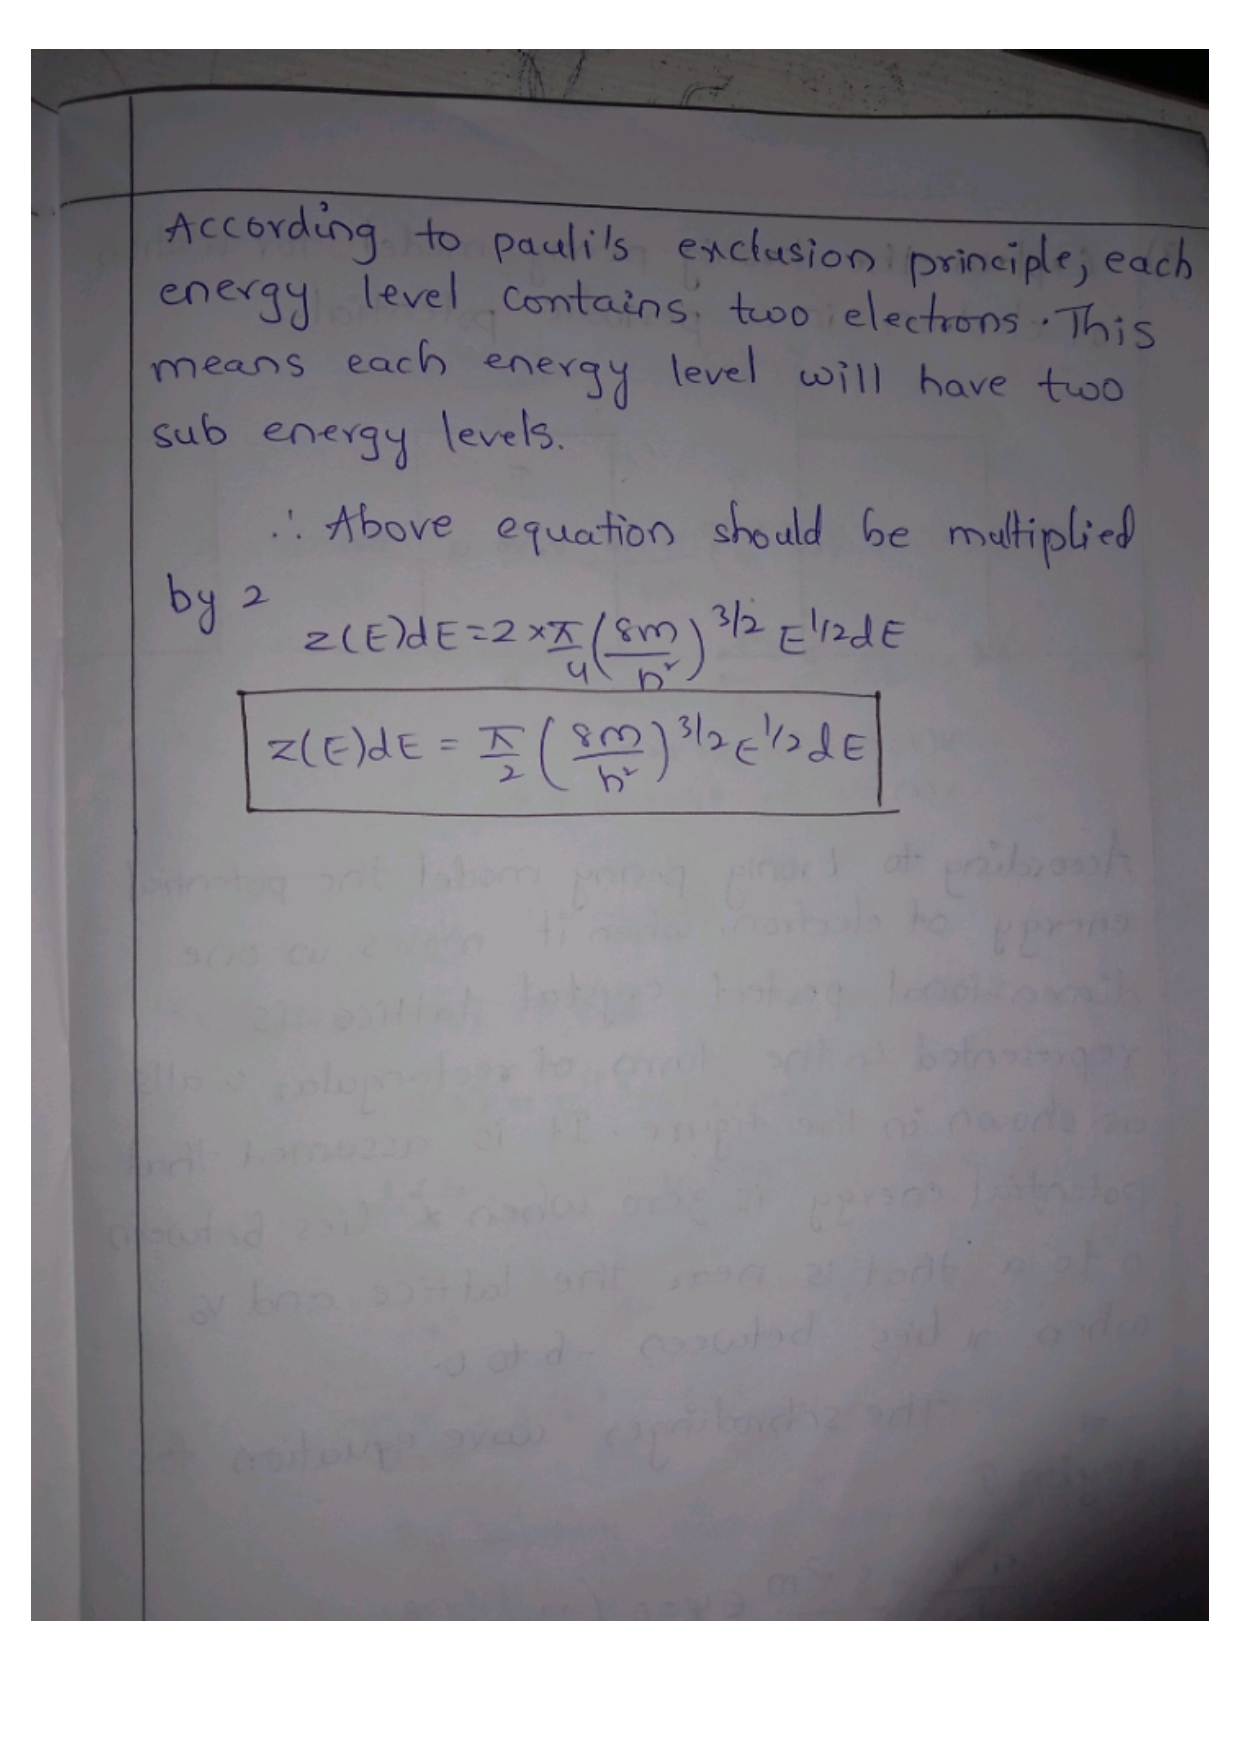 According to pauli's exclusion principle, each
energy level contains two electrons. This
means each energy level will have two
sub energy levels.
∴ Above equation should be multiplied
by 2
z(E)dE = 2 × π/4 (8m/h²)^3/2 E^1/2 dE
z(E)dE = π/2 (8m/h²)^3/2 E^1/2 dE